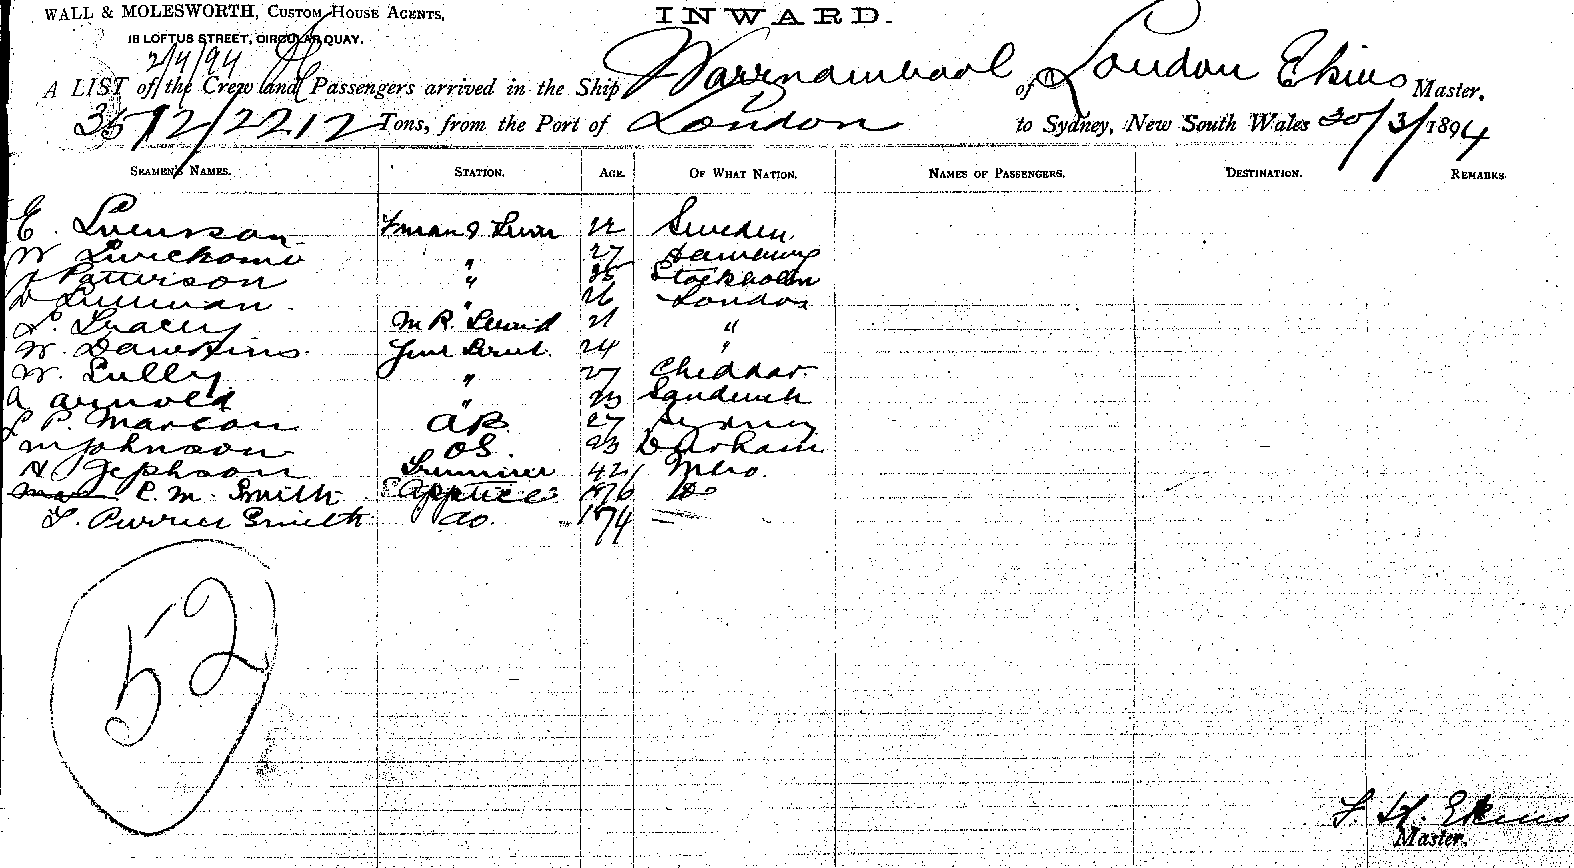 WALL & MOLESWORTH, CUSTOM HOUSE AGENTS,
INWARD.
18 LOFTUS STREET, CIRCULAR QUAY.
2/4/94
A LIST of the Crew and Passengers arrived in the Ship Warrnambool of London Ekins Master.
3512/2212 Tons, from the Port of London to Sydney, New South Wales 30/3/1894
SEAMEN'S NAMES. STATION. AGE. OF WHAT NATION. NAMES OF PASSENGERS. DESTINATION. REMARKS.
E. Svensson 22 Sweden
W 27
Patterson " 35 Stockholm
" 26 London
Tracey 21 "
W. Dawkins 24 "
W. Tully " 27 Cheddar
A Arnold " 23 Sandwich
P. Marcon AB 27 Sydney
M Johnson OS. 23 Durham
H Jephson 42
C. M. Smith Apptice 1876 Do
T. Purrier Smith do. 1874
52
F. H. Ekins
Master.